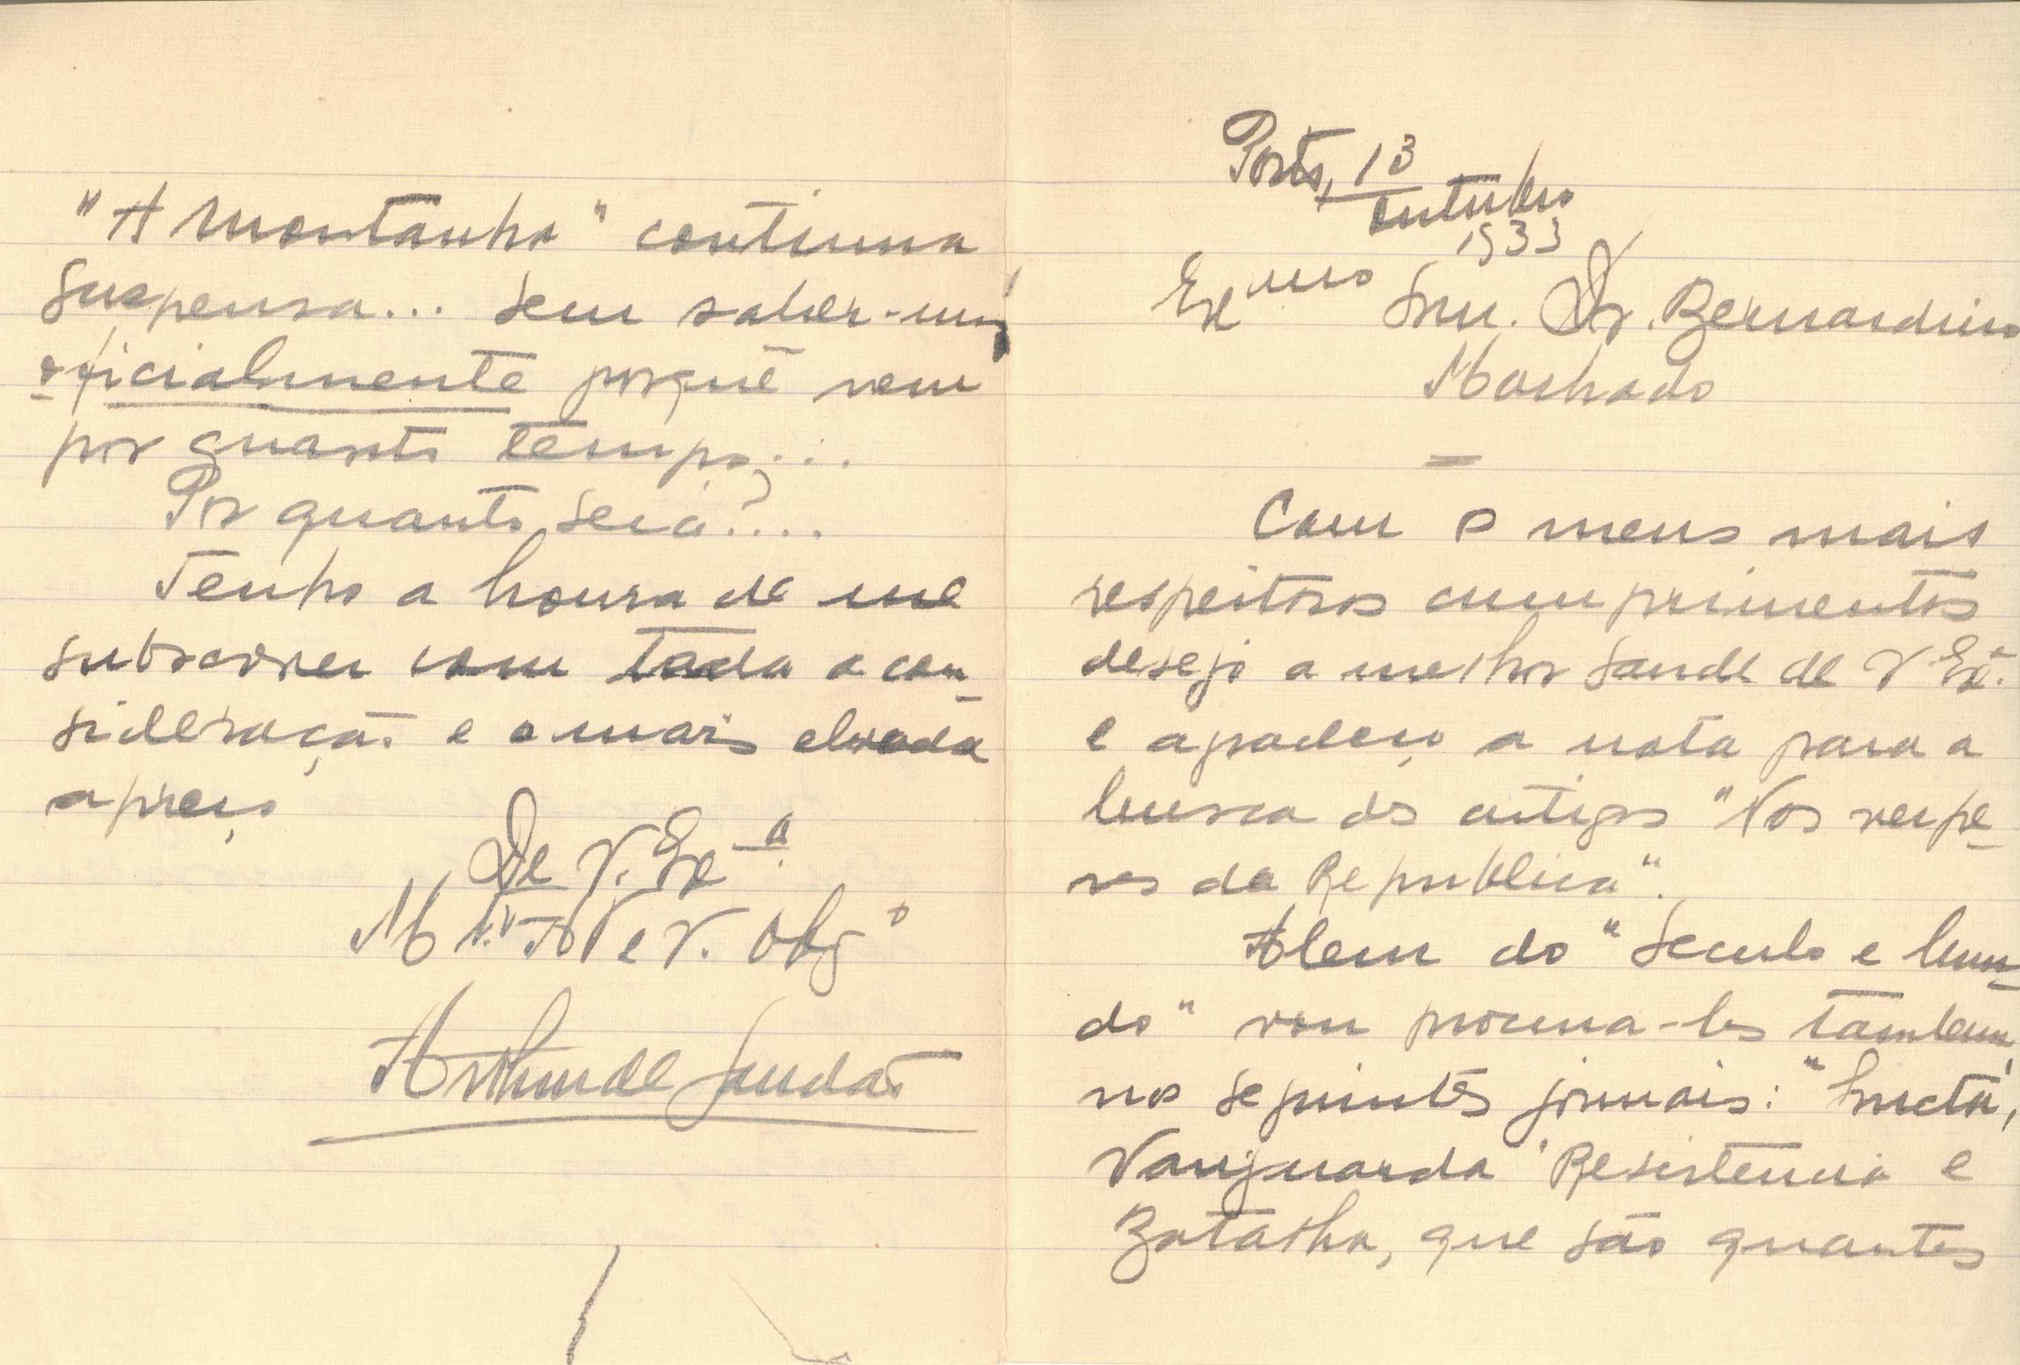 Porto, 13
Outubro
1933
Exmo Snr. Dr. Bernardino
Machado
Com o meus mais
respeitosos cumprimentos
desejo a melhor saude de V. Exª.
e agradeço a nota para a
busca dos artigos "Nas vespe-
ras da Republica".
Alem do "Seculo e Mun-
do" vou procura-los tambem,
nos seguintes jornais: "Lucta,
Vanguarda Resistencia e
Batalha, que são quantos
"A Montanha" continua
suspensa... sem saber-mos
oficialmente porquê nem
por quanto tempo;...
Por quanto será?....
Tenho a honra de me
subscrever com toda a con-
sideração e o mais elevado
apreço
De V. Exª
Mto Ad e V. Obgo
Arthur de